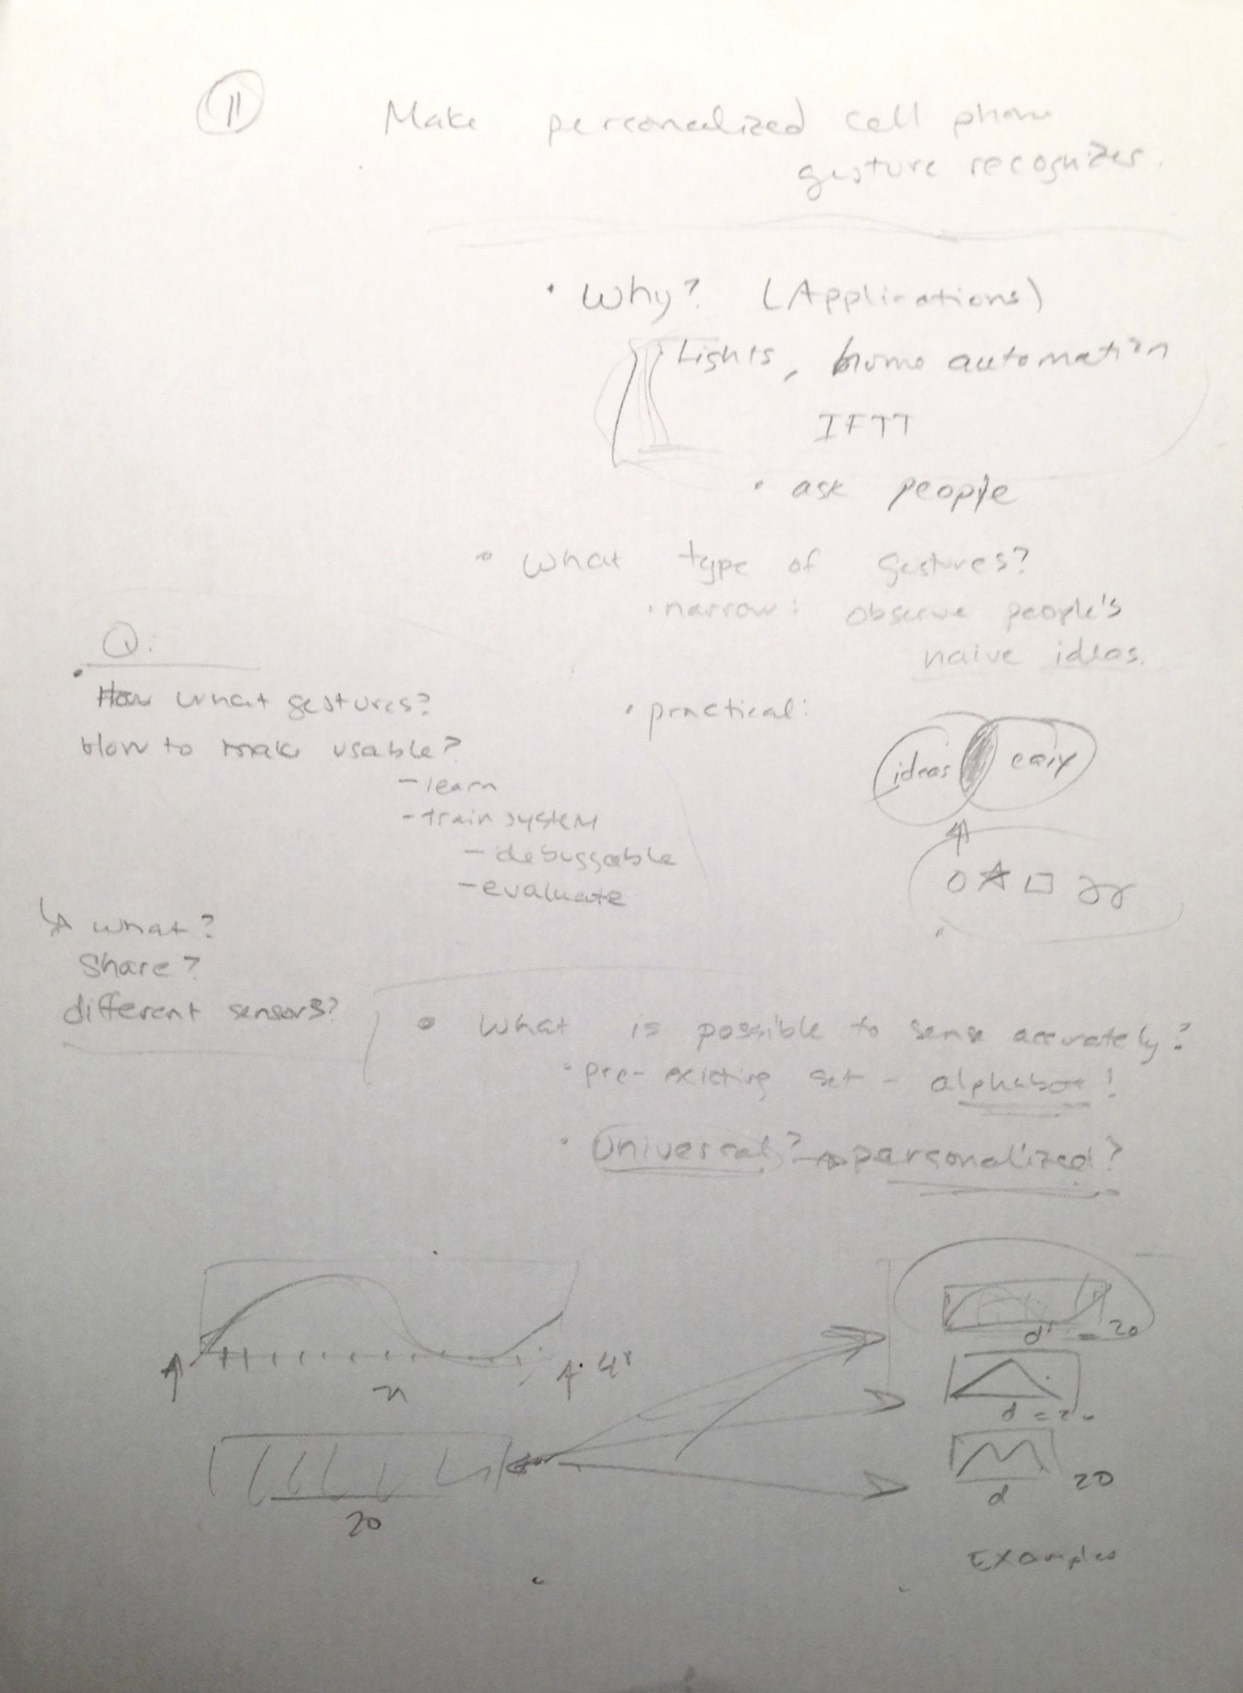 11
Make personalized cell phone
gesture recognizer.
• Why? (Applications)
Lights, home automation
IFTT
• ask people
• What type of gestures?
• narrow: observe people's
naive ideas.
• practical:
ideas easy
Q:
• How what gestures?
How to make usable?
- learn
- train system
- debuggable
- evaluate
↳ what?
Share?
different sensors?
• What is possible to sense accurately?
• pre-existing set - alphabet!
• Universal? → personalized?
n
20
d = 20
d = 20
d 20
Examples